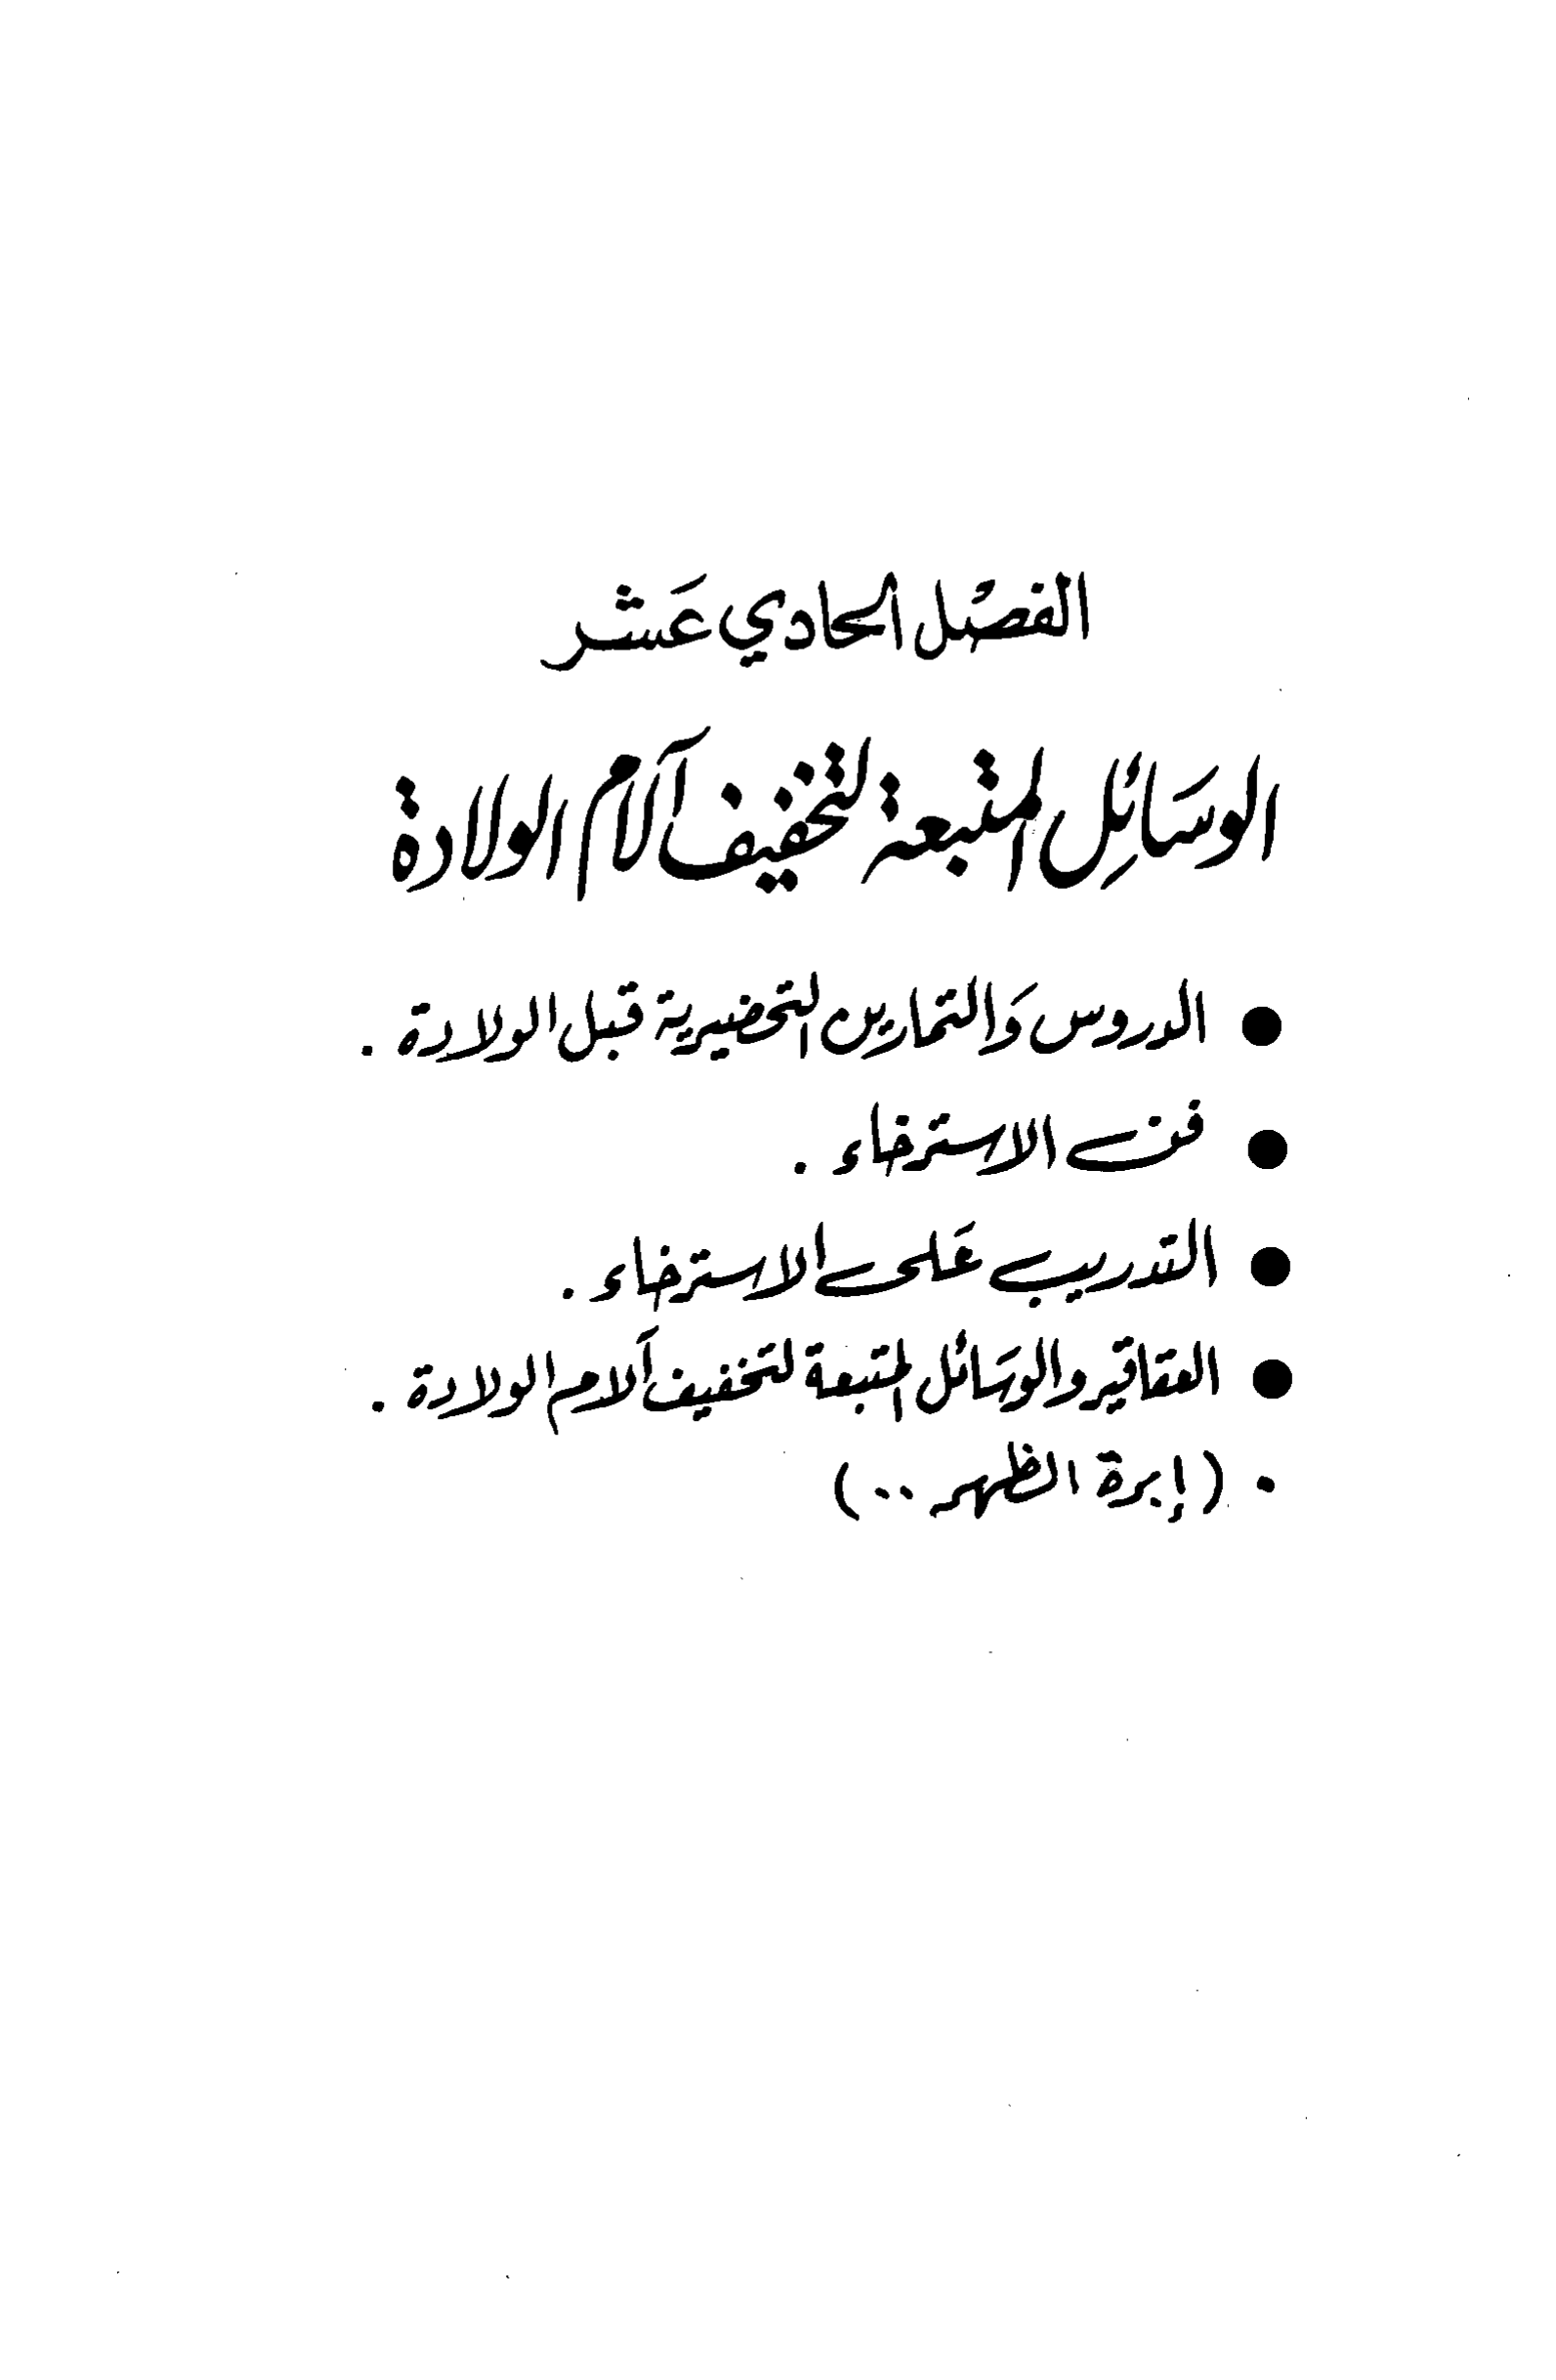 الفصَل الحادي عَشر
الوسَائِل المتبعة لتخفيف آلام الولادة
● الدروس وَالتمارين التحضيرية قبل الولادة .
● فن الاسترخاء .
● التدريب عَلى الاسترخاء .
● العقاقير والوسَائل المتبعة لتخفيف آلام الولادة .
• (إبرة الظهر ..)